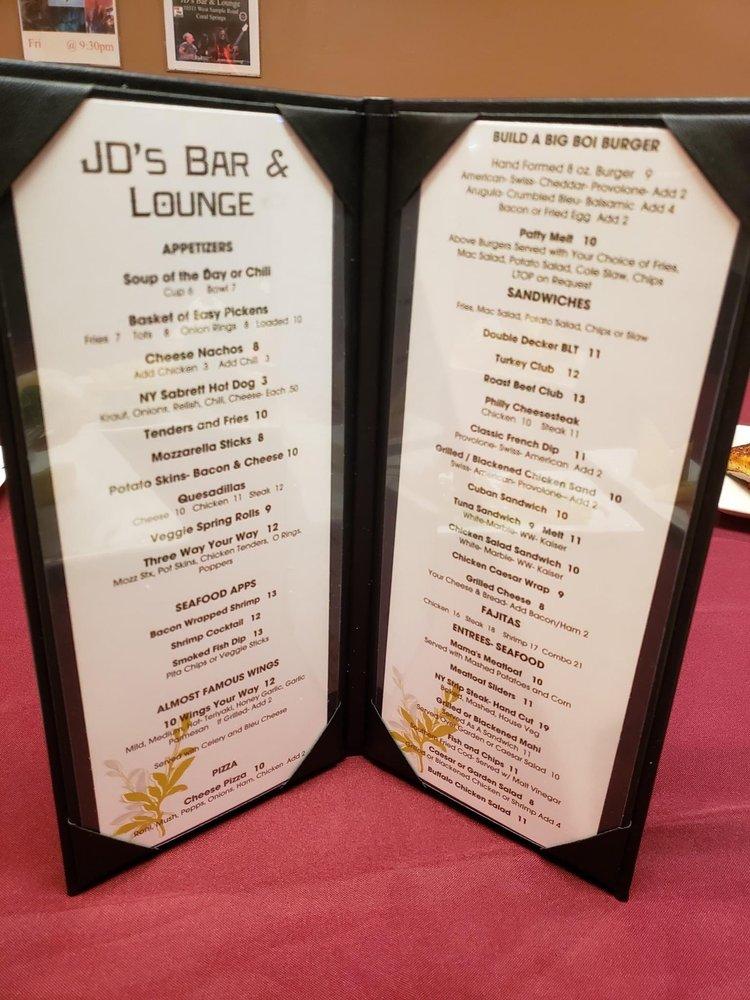 Fri @ 9:30pm
JD's Bar & Lounge
10311 West Sample Road
Coral Springs
JD's Bar &
Lounge
APPETIZERS
Soup of the Day or Chili
Cup 6 Bowl 7
Basket of Easy Pickens
Fries 7 Tots 8 Onion Rings 8 Loaded 10
Cheese Nachos 8
Add Chicken 3 Add Chili 3
NY Sabrett Hot Dog 3
Kraut, Onions, Relish, Chili, Cheese- Each .50
Tenders and Fries 10
Mozzarella Sticks 8
Potato Skins- Bacon & Cheese 10
Quesadillas
Cheese 10 Chicken 11 Steak 12
Veggie Spring Rolls 9
Three Way Your Way 12
Mozz Stx, Pot Skins, Chicken Tenders, O Rings,
Poppers
SEAFOOD APPS
Bacon Wrapped Shrimp 13
Shrimp Cocktail 12
Smoked Fish Dip 13
Pita Chips or Veggie Sticks
ALMOST FAMOUS WINGS
10 Wings Your Way 12
Mild, Medium, Hot- Teriyaki, Honey Garlic, Garlic
Parmesan If Grilled- Add 2
Served with Celery and Bleu Cheese
PIZZA
Cheese Pizza 10
Roni, Mush, Pepps, Onions, Ham, Chicken Add 2
BUILD A BIG BOI BURGER
Hand Formed 8 oz. Burger 9
American- Swiss- Cheddar- Provolone- Add 2
Arugula- Crumbled Bleu- Balsamic Add 4
Bacon or Fried Egg Add 2
Patty Melt 10
Above Burgers Served with Your Choice of Fries,
Mac Salad, Potato Salad, Cole Slaw, Chips
LTOP on Request
SANDWICHES
Fries, Mac Salad, Potato Salad, Chips or Slaw
Double Decker BLT 11
Turkey Club 12
Roast Beef Club 13
Philly Cheesesteak
Chicken 10 Steak 11
Classic French Dip 11
Provolone- Swiss- American Add 2
Grilled / Blackened Chicken Sand 10
Swiss- American- Provolone- Add 2
Cuban Sandwich 10
Tuna Sandwich 9 Melt 11
White-Marble- WW- Kaiser
Chicken Salad Sandwich 10
White- Marble- WW- Kaiser
Chicken Caesar Wrap 9
Grilled Cheese 8
Your Cheese & Bread- Add Bacon/Ham 2
FAJITAS
Chicken 16 Steak 18 Shrimp 17 Combo 21
ENTREES- SEAFOOD
Mama's Meatloaf 10
Served with Mashed Potatoes and Corn
Meatloaf Sliders 11
NY Strip Steak- Hand Cut 19
Mashed, House Veg
Grilled or Blackened Mahi
Served As A Sandwich 11
Over Garden or Caesar Salad 10
Fish and Chips 11
Fried Cod- Served w/ Malt Vinegar
Caesar or Garden Salad 8
Grilled or Blackened Chicken or Shrimp Add 4
Buffalo Chicken Salad 11